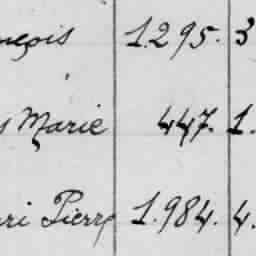 nçois 1.295. 3
s Marie 447. 1.
ri Pierre 1.984. 4.